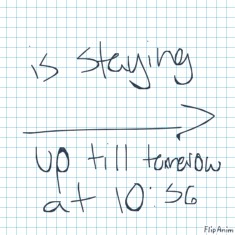 is staying
up till tomerow
at 10:56
FlipAnim